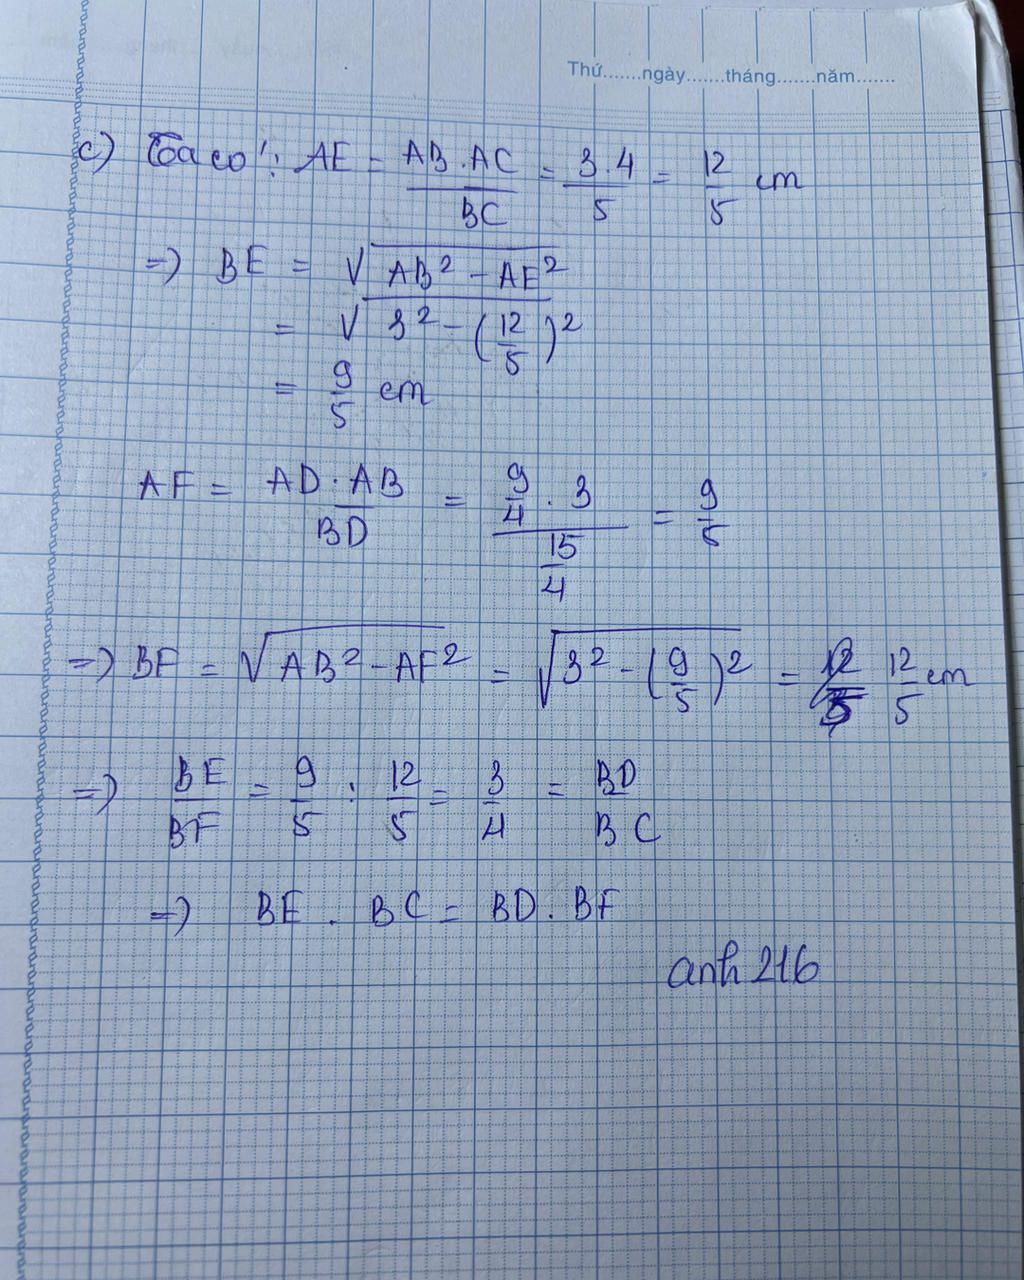 Thứ.......ngày.......tháng.......năm.......
c) Ta có: AE = AB.AC/BC = 3.4/5 = 12/5 cm
=> BE = √(AB² - AE²)
= √(3² - (12/5)²)
= 9/5 cm
AF = AD.AB/BD = (9/4 . 3)/(15/4) = 9/5
=> BF = √(AB² - AF²) = √(3² - (9/5)²) = 12/5 cm
=> BE/BF = 9/5 : 12/5 = 3/4 = BD/BC
=> BE . BC = BD . BF
anh 216